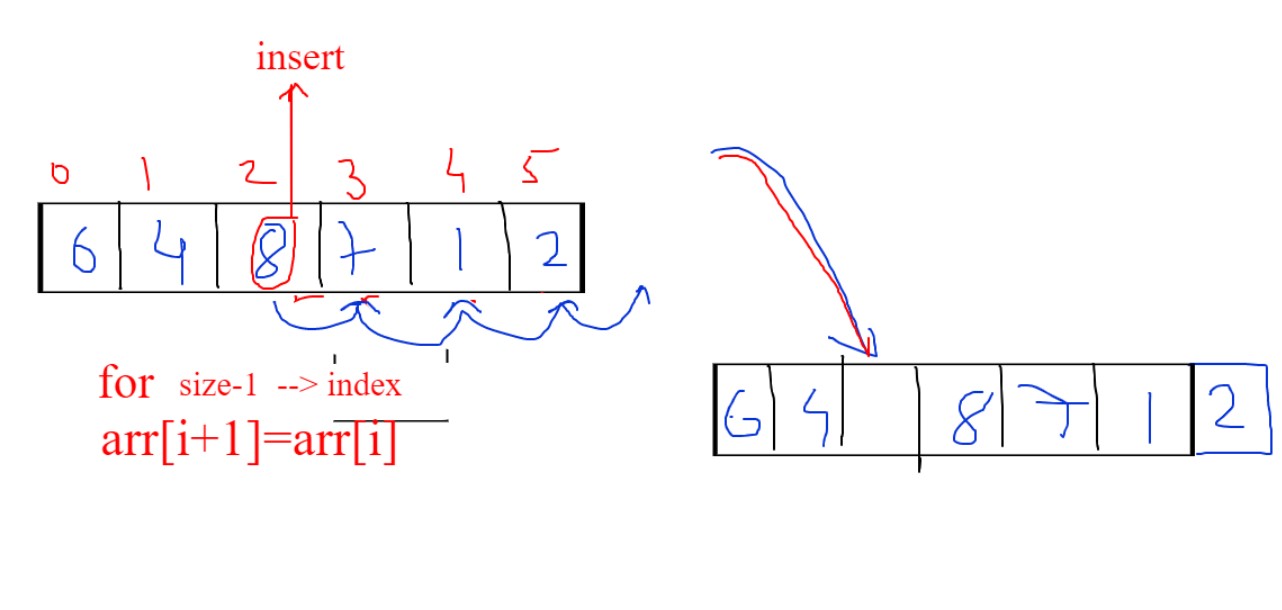 insert
0 1 2 3 4 5
6 4 8 7 1 2
for size-1 --> index
arr[i+1]=arr[i]
6 4 8 7 1 2